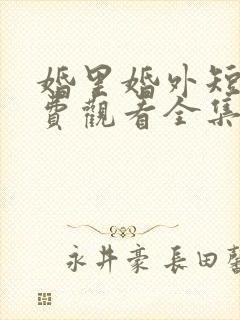 婚里婚外短
費觀看全集
永井豪 長田馨